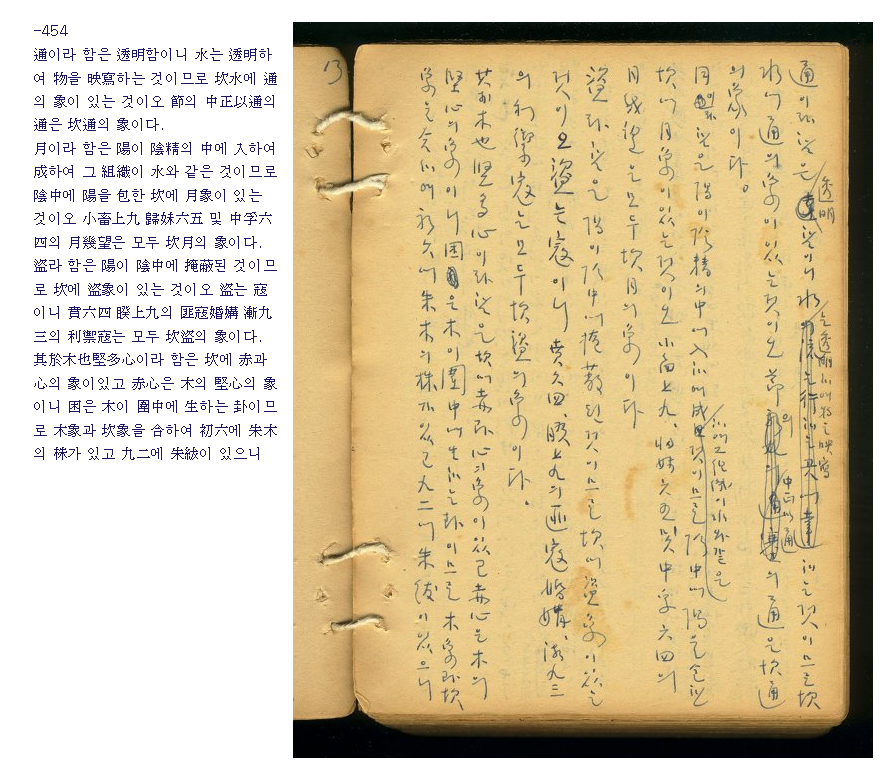 -454
通이라 함은 透明함이니 水는 透明하
여 物을 映寫하는 것이므로 坎水에 通
의 象이 있는 것이오 節의 中正以通의
通은 坎通의 象이다.
月이라 함은 陽이 陰精의 中에 入하여
成하여 그 組織이 水와 같은 것이므로
陰中에 陽을 包한 坎에 月象이 있는
것이오 小畜上九 歸妹六五 및 中孚六
四의 月幾望은 모두 坎月의 象이다.
盜라 함은 陽이 陰中에 掩蔽된 것이므
로 坎에 盜象이 있는 것이오 盜는 寇
이니 賁六四 睽上九의 匪寇婚媾 漸九
三의 利禦寇는 모두 坎盜의 象이다.
其於木也堅多心이라 함은 坎에 赤과
心의 象이있고 赤心은 木의 堅心의 象
이니 困은 木이 圍中에 生하는 卦이므
로 木象과 坎象을 合하여 初六에 朱木
의 株가 있고 九二에 朱紱이 있으니
通이라 함은 透明함이니 水는 透明하여 物을 映寫하는 것이므로 坎
水에 通의 象이 있는 것이오 節의 中正以通의 通은 坎通
의 象이다。
月이라 함은 陽이 陰精의 中에 入하여 成하여 그 組織이 水와 같은 것이므로 陰中에 陽을 包한
坎에 月象이 있는 것이오 小畜上九、歸妹六五 및 中孚六四의
月幾望은 모두 坎月의 象이다
盜라 함은 陽이 陰中에 掩蔽된 것이므로 坎에 盜象이 있는
것이오 盜는 寇이니 賁六四、睽上九의 匪寇婚媾、漸九三
의 利禦寇는 모두 坎盜의 象이다.
其於木也堅多心이라 함은 坎에 赤과 心의 象이 있고 赤心은 木의
堅心의 象이니 困은 木이 圍中에 生하는 卦이므로 木象과 坎
象을 合하여 初六에 朱木의 株가 있고 九二에 朱紱이 있으니
13